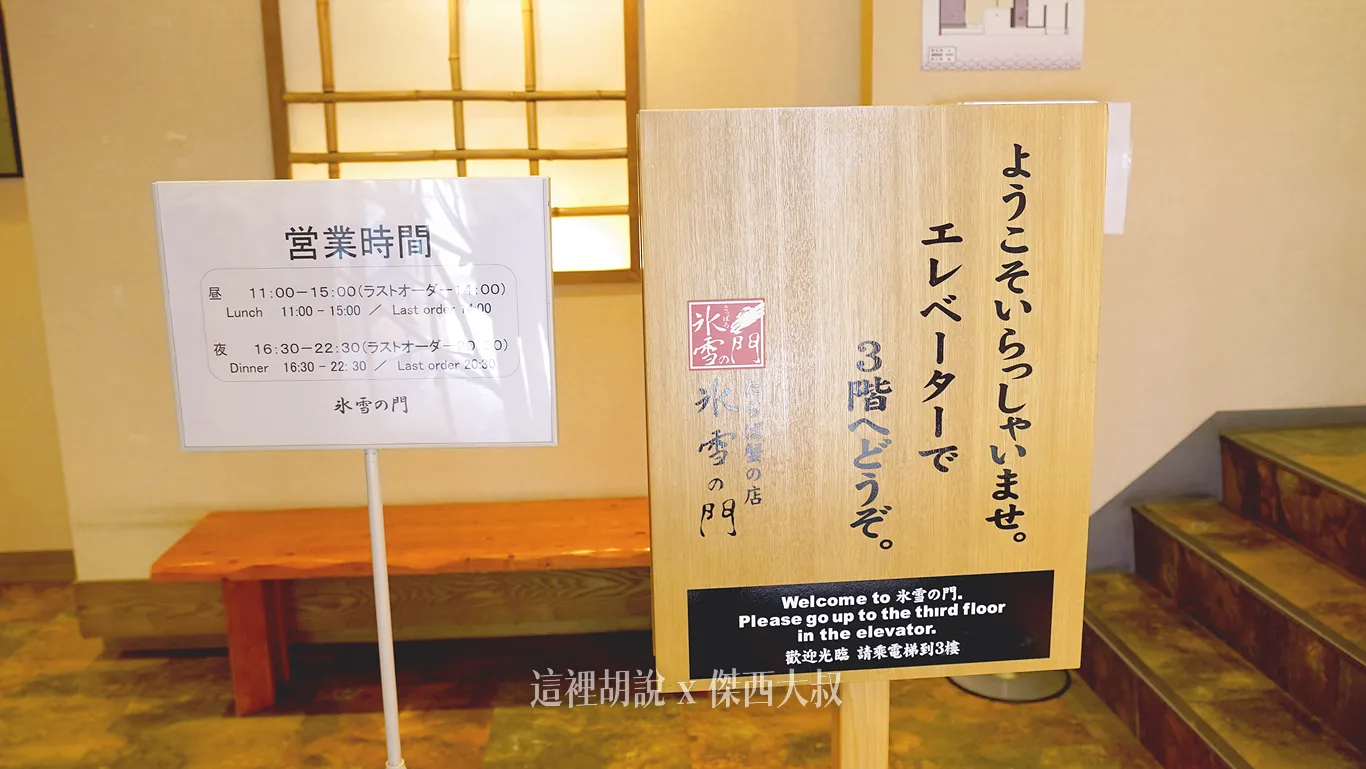 営業時間
昼 11:00-15:00(ラストオーダー14:00)
Lunch 11:00 - 15:00 / Last order 14:00
夜 16:30-22:30(ラストオーダー20:30)
Dinner 16:30 - 22:30 / Last order 20:30
氷雪の門
ようこそいらっしゃいませ。
エレベーターで
3階へどうぞ。
氷雪の門
たらば蟹の店
氷雪の門
Welcome to 氷雪の門.
Please go up to the third floor
in the elevator.
歡迎光臨 請乘電梯到3樓
這裡胡說 x 傑西大叔